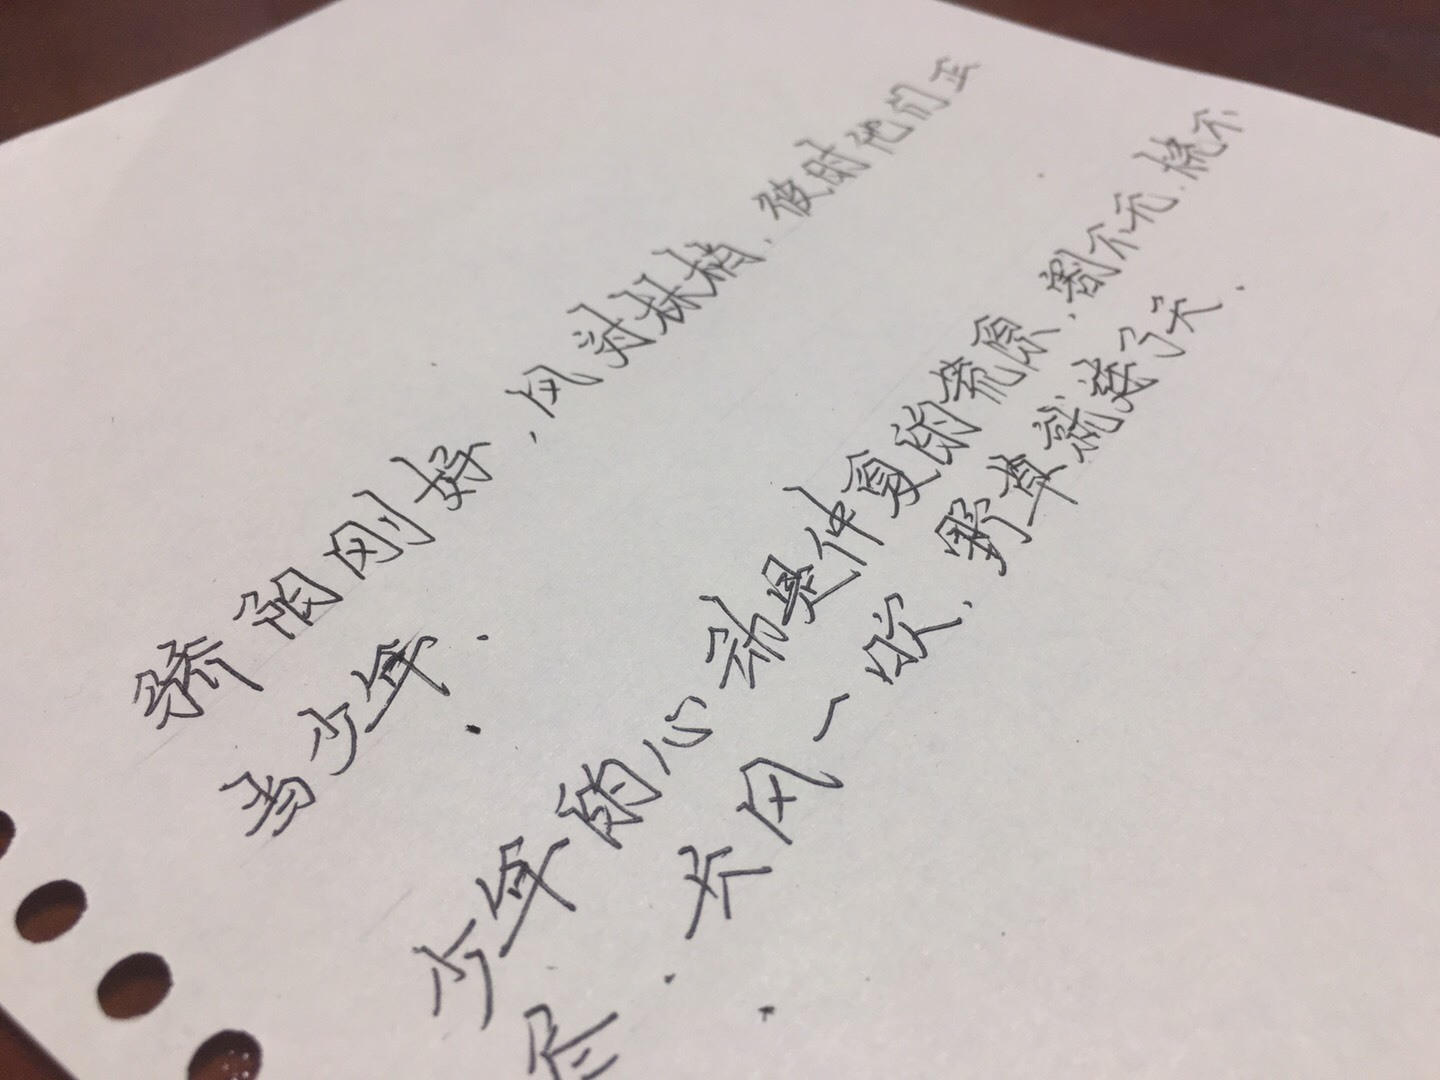 骄阳刚好，风过林梢，彼时他们正
当少年.
少年的心动是仲夏的荒原，割不完，烧不
尽.长风一吹，野草就连了天.